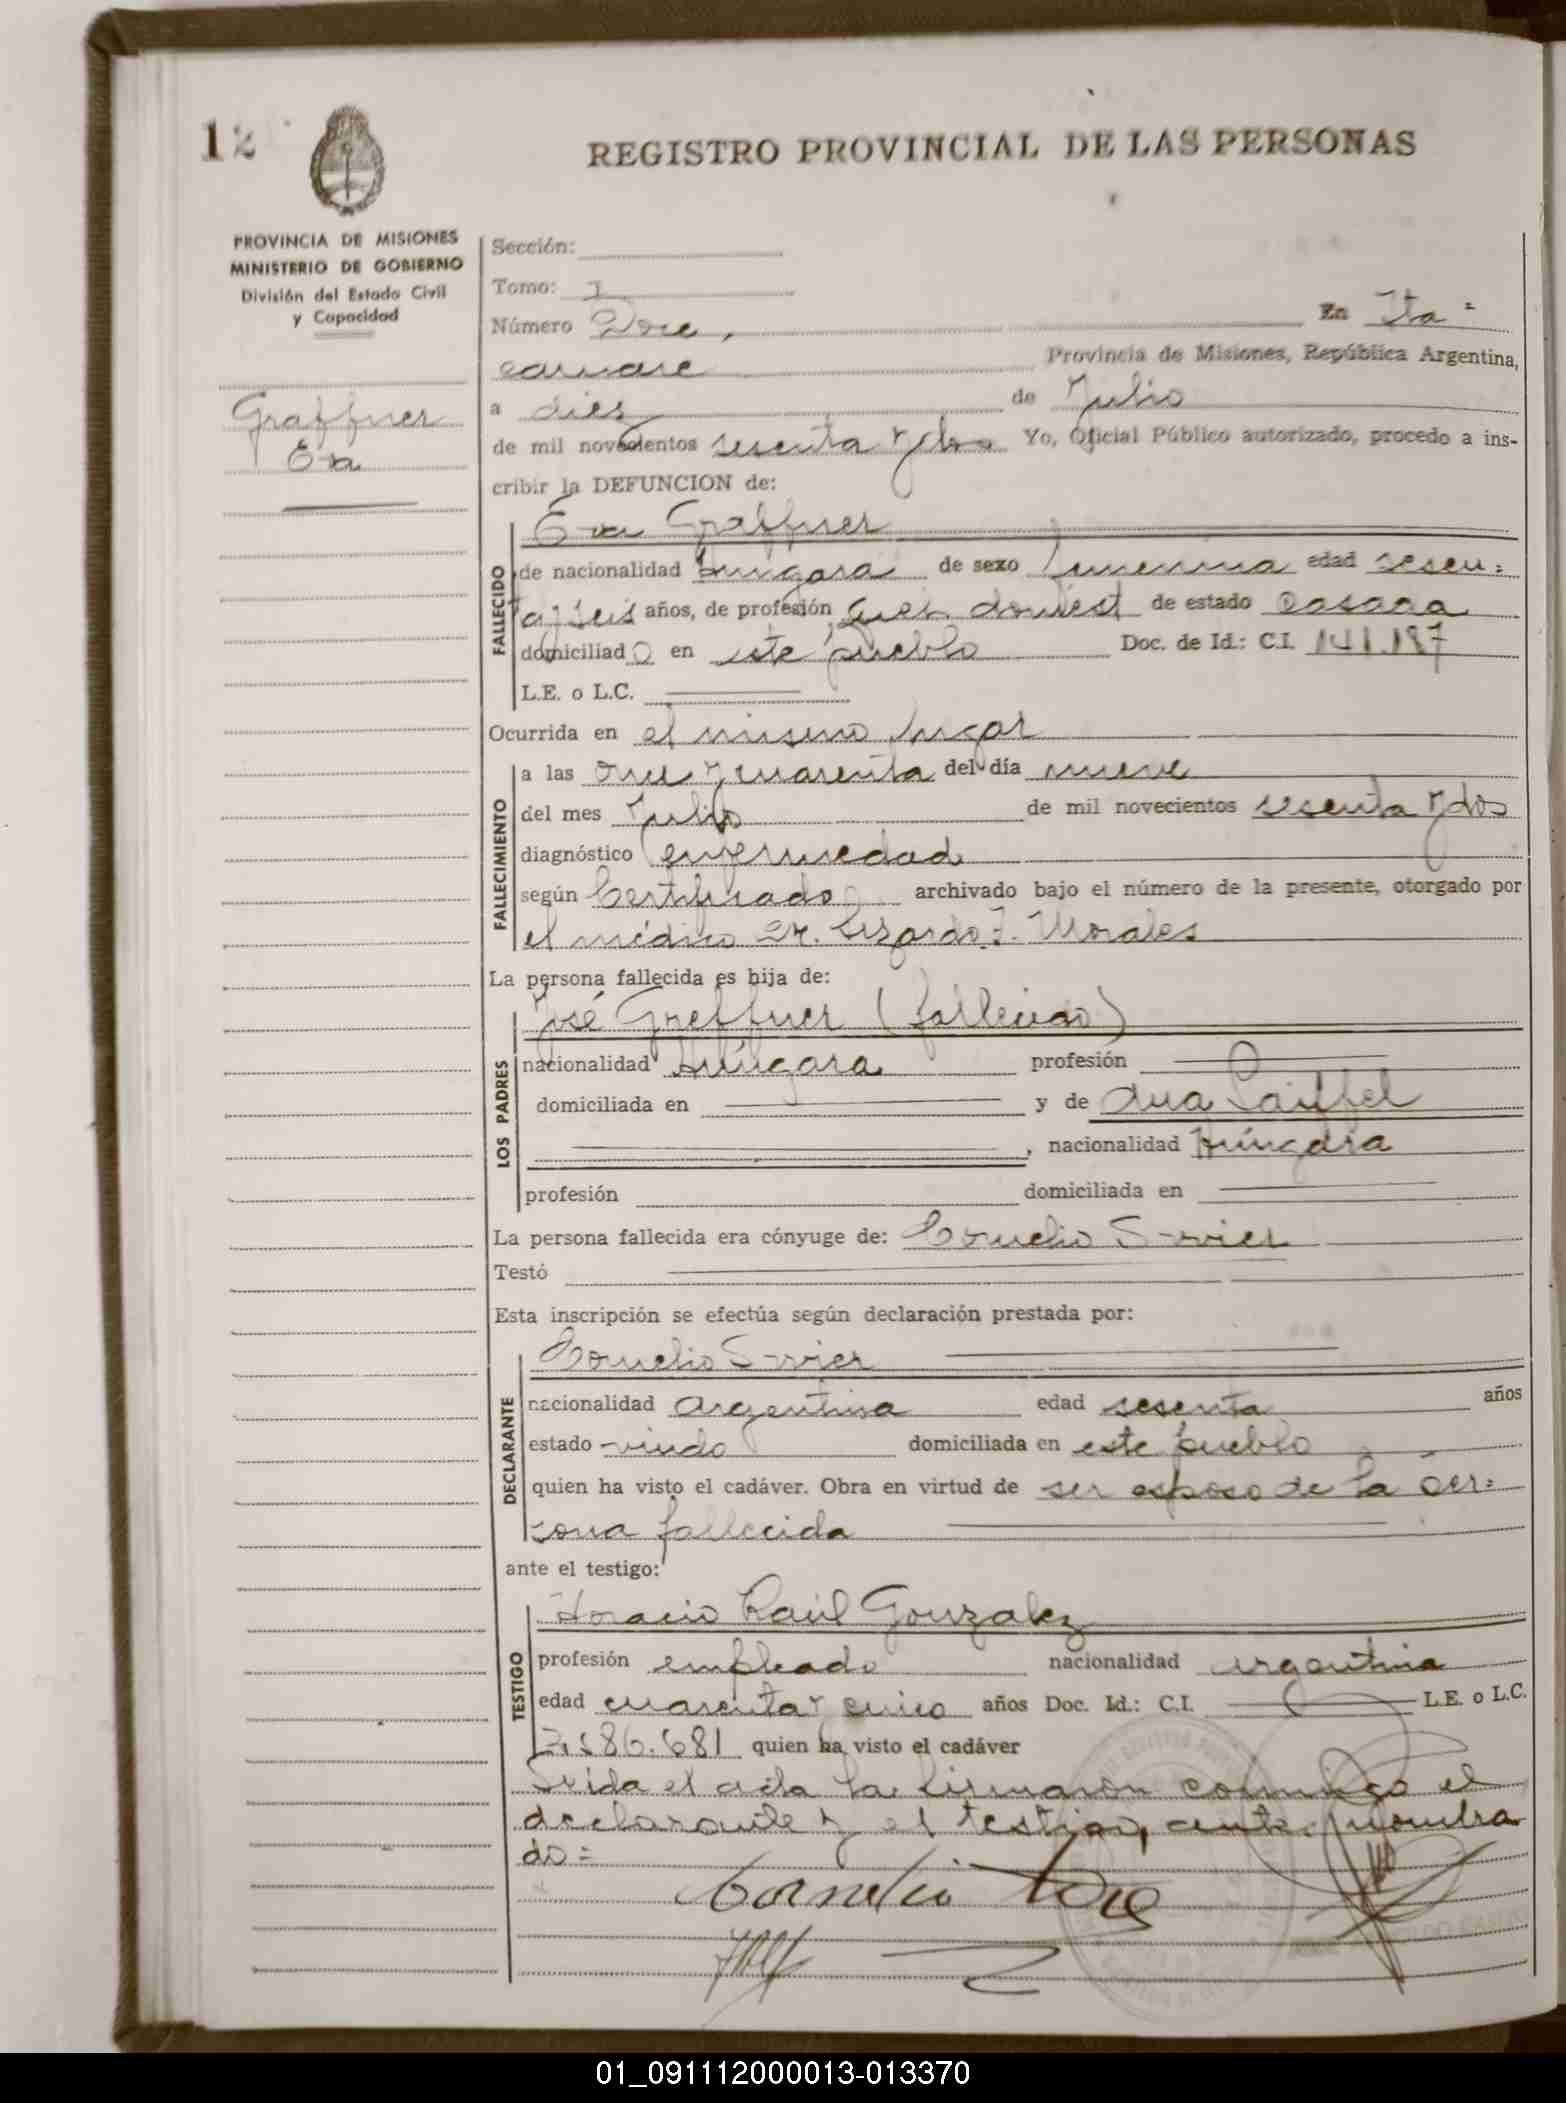 12
REGISTRO PROVINCIAL DE LAS PERSONAS
PROVINCIA DE MISIONES
MINISTERIO DE GOBIERNO
División del Estado Civil
y Capacidad
Graffner
Eva
Sección:
Tomo: I
Número Doce, En Ita=
caruare Provincia de Misiones, República Argentina,
a diez de Julio
de mil novecientos sesenta y dos Yo, Oficial Público autorizado, procedo a ins-
cribir la DEFUNCION de:
Eva Graffner
FALLECIDO
de nacionalidad Húngara de sexo femenina edad sesen=
ta y seis años, de profesión queh. domést de estado casada
domiciliado en este pueblo Doc. de Id.: C.I. 141.187
L.E. o L.C.
Ocurrida en el mismo lugar
FALLECIMIENTO
a las once y cuarenta del día nueve
del mes Julio de mil novecientos sesenta y dos
diagnóstico enfermedad
según Certificado archivado bajo el número de la presente, otorgado por
el médico Dr. Lizardo J. Morales
La persona fallecida es hija de:
LOS PADRES
José Greffner (fallecido)
nacionalidad Húngara profesión
domiciliada en y de Ana
, nacionalidad Húngara
profesión domiciliada en
La persona fallecida era cónyuge de: Cornelio
Testó
Esta inscripción se efectúa según declaración prestada por:
DECLARANTE
Cornelio
nacionalidad argentina edad sesenta años
estado viudo domiciliada en este pueblo
quien ha visto el cadáver. Obra en virtud de ser esposo de la per=
sona fallecida
ante el testigo:
TESTIGO
Horacio Raúl Gonzalez
profesión empleado nacionalidad argentina
edad cuarenta y cinco años Doc. Id.: C.I. L.E. o L.C.
86.681 quien ha visto el cadáver
Leida el acta la firmaron conmigo el
declarante y el testigo, ante nombra
do=
Cornelio
01_091112000013-013370